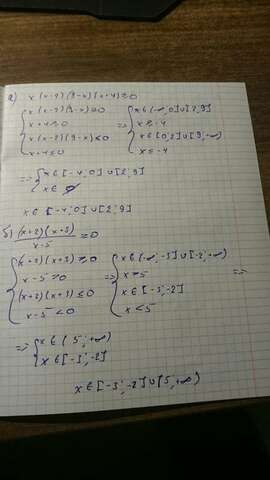 а) x(x-2)(9-x)(x+4)≥0
{x(x-2)(9-x)≥0
x+4≥0
x(x-2)(9-x)≤0
x+4≤0
=> {x∈(-∞,0]∪[2;9]
x≥-4
x∈[0,2]∪[9,-∞)
x≤-4
=> {x∈[-4,0]∪[2;9]
x∈∅
x∈[-4;0]∪[2;9]
б) (x+2)(x+3)/x-5=0
{(x+2)(x+3)≥0
x-5≥0
(x+2)(x+3)≤0
x-5<0
=> {x∈(-∞,-3]∪[-2;+∞)
x>5
x∈[-3;-2]
x<5
=>
=> {x∈(5;+∞)
x∈[-3;-2]
x∈[-3;-2]∪[5,+∞)